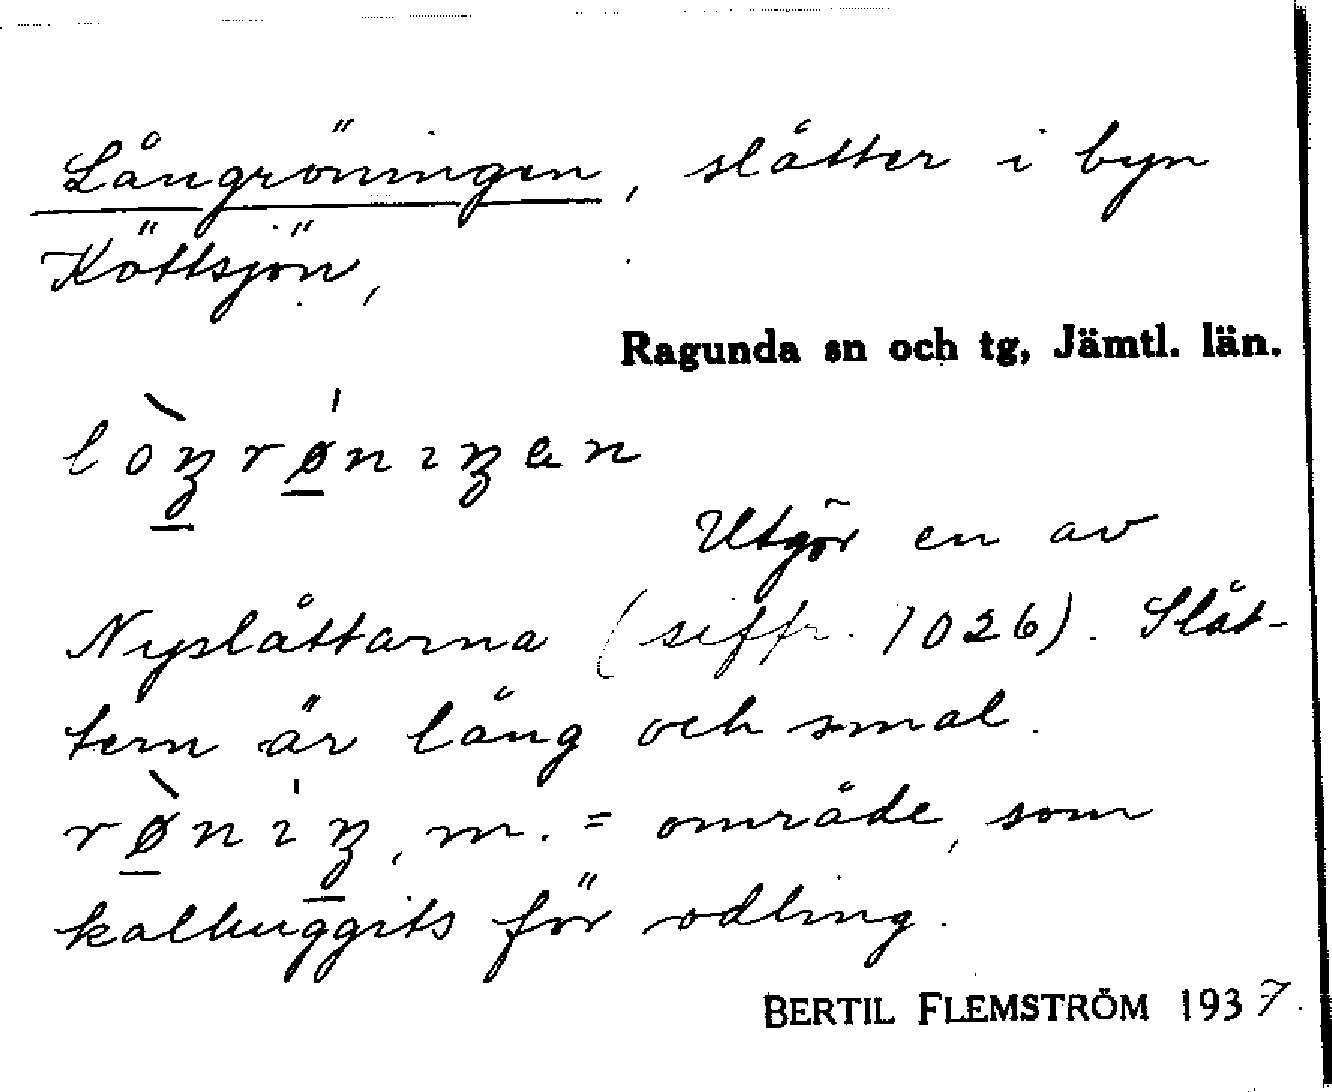 Långröningen, slåtter i byn
Köttsjön,
Ragunda sn och tg, Jämtl. län.
lòŋrǿ̱nıŋen
Utgör en av
Nyslåttarna (siffr. 1026). Slåt-
tern är lång och smal.
rø̱̀nıŋ, m. = område, som
kalhuggits för odling.
BERTIL FLEMSTRÖM 1937.